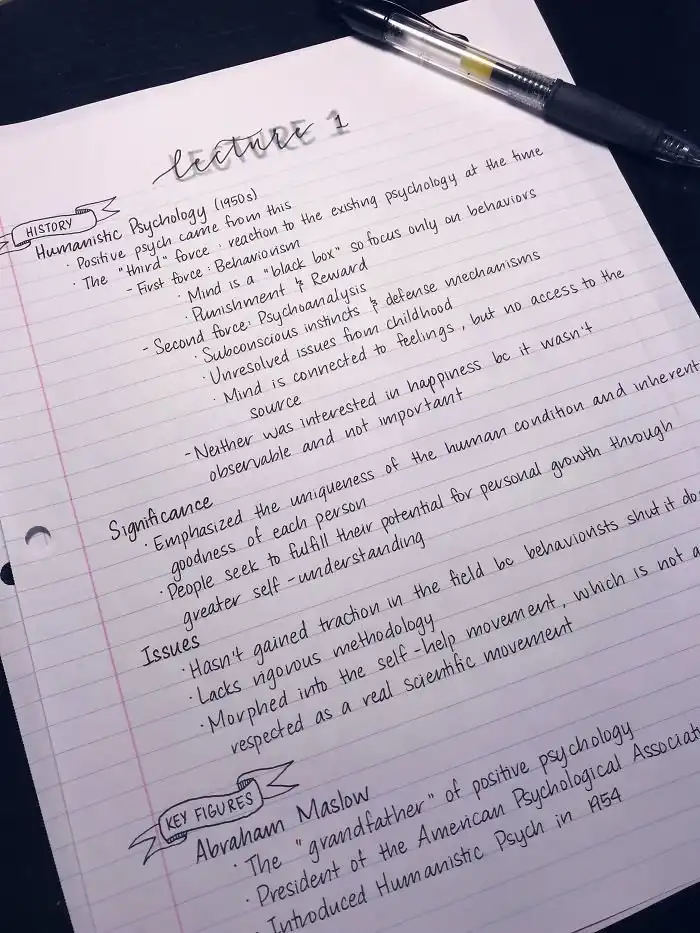 lecture 1
LECTURE
HISTORY
Humanistic Psychology (1950s)
· Positive psych came from this
· The "third" force : reaction to the existing psychology at the time
- First force : Behaviorism
· Mind is a "black box" so focus only on behaviors
· Punishment & Reward
- Second force: Psychoanalysis
· Subconscious instincts & defense mechanisms
· Unresolved issues from childhood
· Mind is connected to feelings, but no access to the
source
- Neither was interested in happiness bc it wasn't
observable and not important
Significance
· Emphasized the uniqueness of the human condition and inherent
goodness of each person
· People seek to fulfill their potential for personal growth through
greater self-understanding
Issues
· Hasn't gained traction in the field bc behaviorists shut it do
· Lacks rigorous methodology
· Morphed into the self-help movement, which is not a
respected as a real scientific movement
KEY FIGURES
Abraham Maslow
· The "grandfather" of positive psychology
· President of the American Psychological Associat
· Introduced Humanistic Psych in 1954